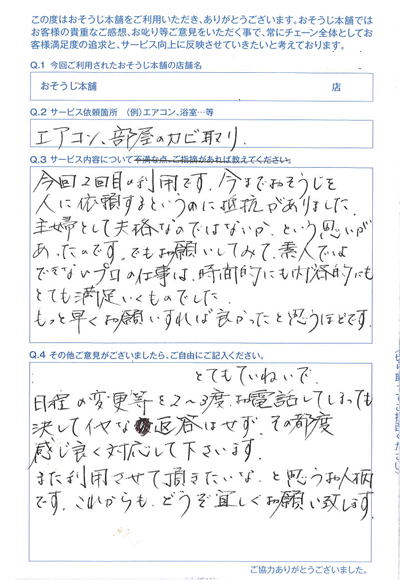 この度はおそうじ本舗をご利用いただき、ありがとうございます。おそうじ本舗では
お客様の貴重なご感想、お叱り等ご意見をいただく事で、常にチェーン全体としてお
客様満足度の追求と、サービス向上に反映させていきたいと考えております。
Q.1 今回ご利用されたおそうじ本舗の店舗名
おそうじ本舗 店
Q.2 サービス依頼箇所 （例）エアコン、浴室…等
エアコン、部屋のカビ取り、
Q.3 サービス内容について不満な点、ご指摘があれば教えてください。
今回2回目の利用です。今までおそうじを
人に依頼するというのに抵抗がありました。
主婦として失格なのではないか、という思いが
あったのです。でもお願いしてみて、素人では
できないプロの仕事は、時間的にも内容的にも
とても満足いくものでした。
もっと早くお願いすれば良かったと思うほどです。
Q.4 その他ご意見がございましたら、ご自由にご記入ください。
とてもていねいで、
日程の変更等を2〜3度お電話してしまっても
決してイヤな返答はせず、その都度
感じ良く対応して下さいます。
また利用させて頂きたいな、と思うお人柄
です。これからも、どうぞ宜しくお願い致します
ご協力ありがとうございました。